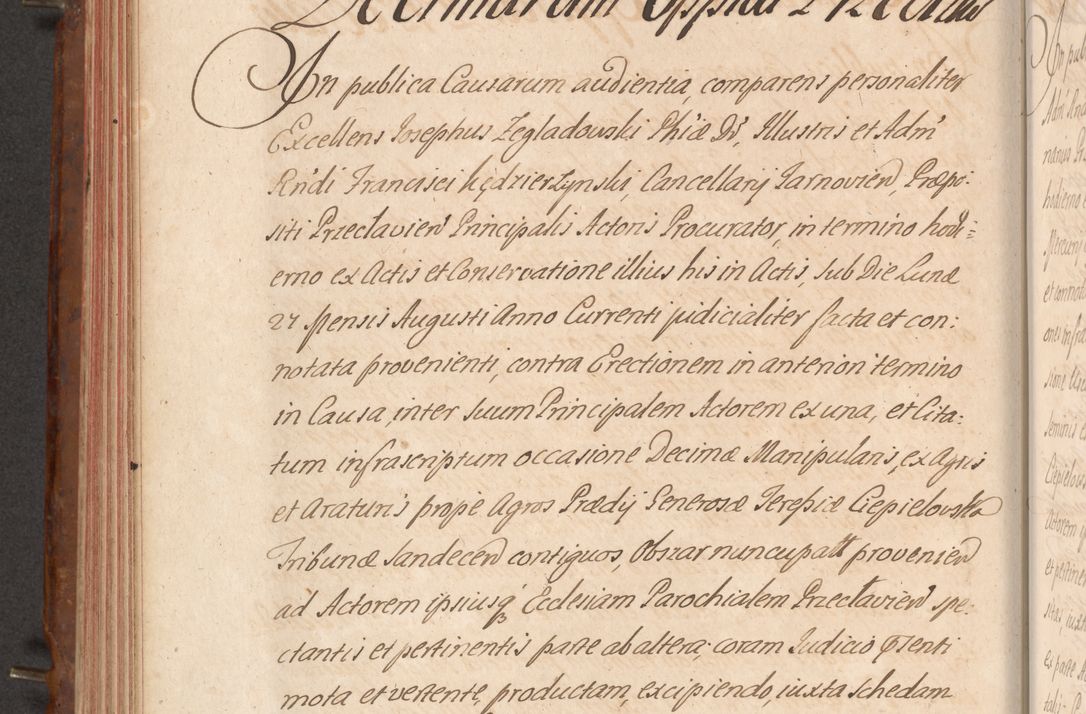 In publica Causarum audientia, comparens personaliter
Excellens Josephus Zegladowski Ph'iæ Dr', Illustris et Adm'
Rn'di Francisci Kędzierzynski, Cancellarij Tarnovien', Præpo:
siti Przeclavien' Principalis Actoris Procurator, in termino hodi=
erno ex Actis et Conservatione illius his in Actis, sub Die Lunæ
27 Mensis Augusti Anno Currenti judicialiter facta et con:
notata provenienti, contra Erectionem in anteriori termino
in Causa, inter suum Principalem Actorem ex una, et Cita:
tum infrascriptum occasione Decimæ Manipularis, ex Agris
et Araturis prope Agros Prædij Generosæ Teresiæ Ciepielowska
Tribunæ Sandecen' contiguos, Obszar nuncupatt provenien'
ad Actorem ipsiusq3 Ecclesiam Parochialem Przeclavien' spe:
ctantis et pertinentis parte ab altera, coram Judicio pr̃senti
mota et vertente, productam, excipiendo, iuxta schedam